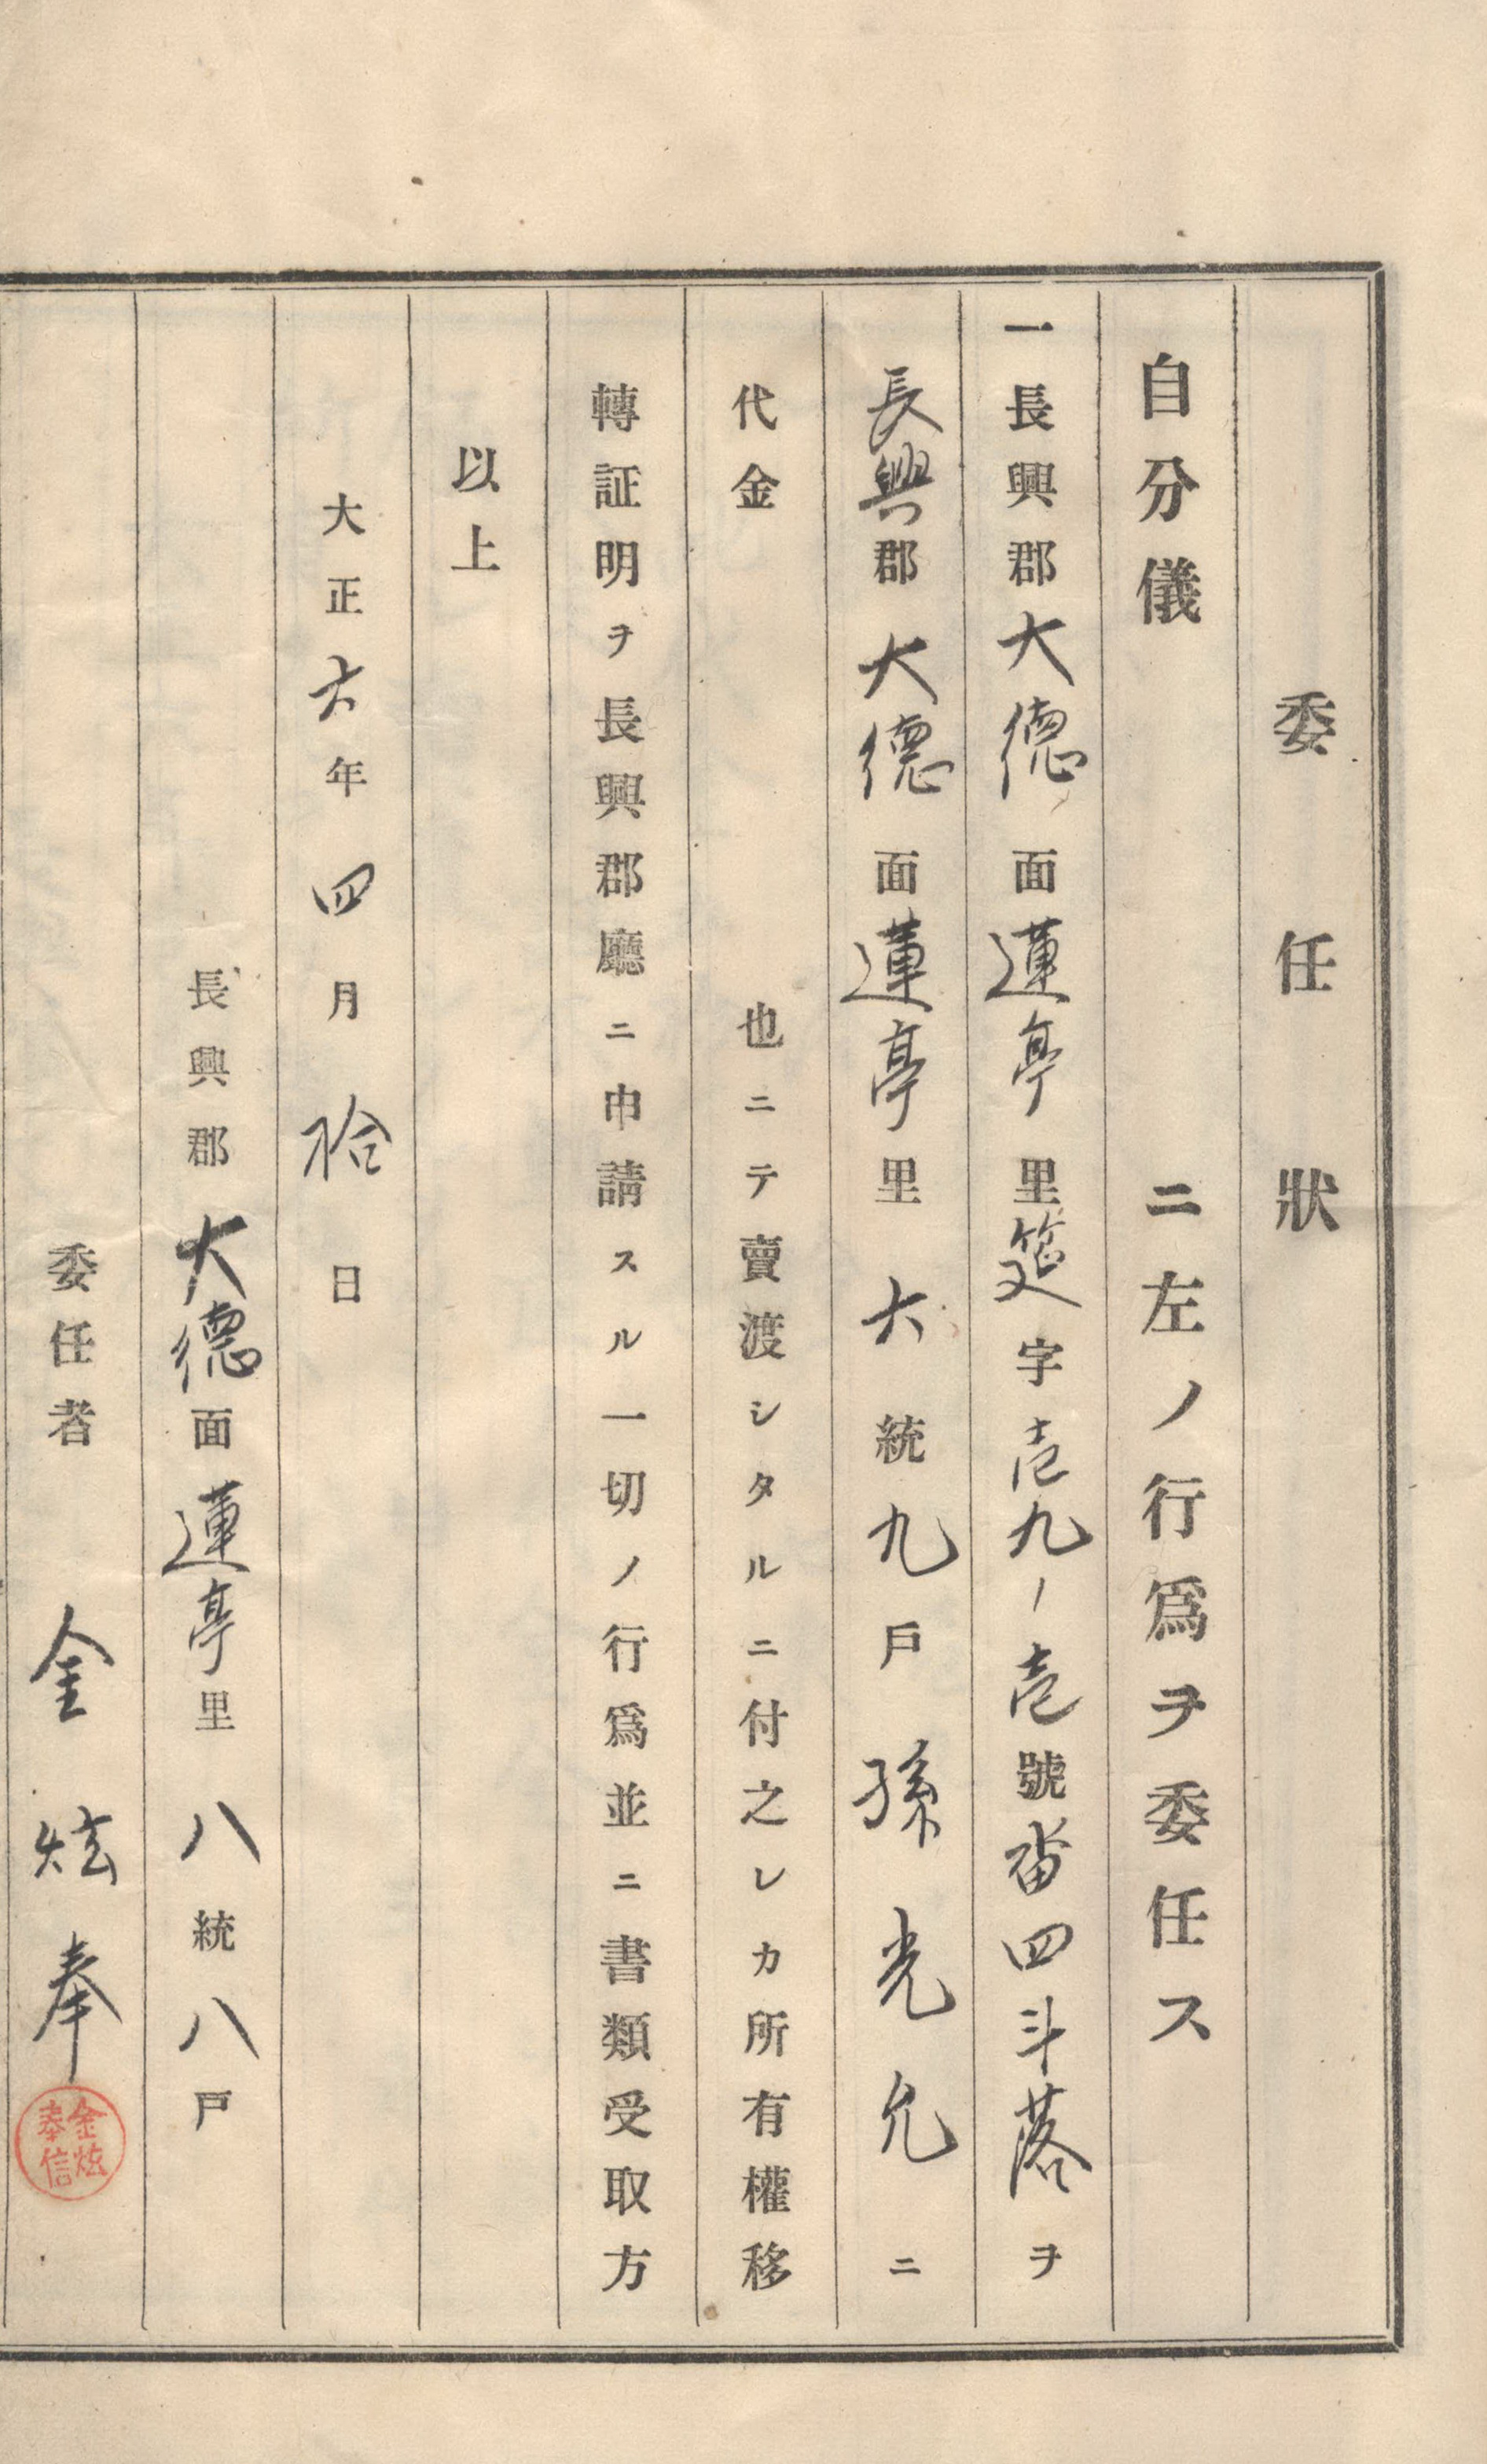 委任狀
自分儀　ニ左ノ行爲ヲ委任ス
一長興郡大德面蓮亭里筵字壱九ノ壱號畓四斗落ヲ
長興郡大德面蓮亭里六統九戶孫光允ニ
代金　也ニテ賣渡シタルニ付之レカ所有權移
轉証明ヲ長興郡廳ニ申請スル一切ノ行爲並ニ書類受取方
以上
大正六年四月拾日
長興郡大德面蓮亭里八統八戶
委任者　金炫奉
金炫奉信